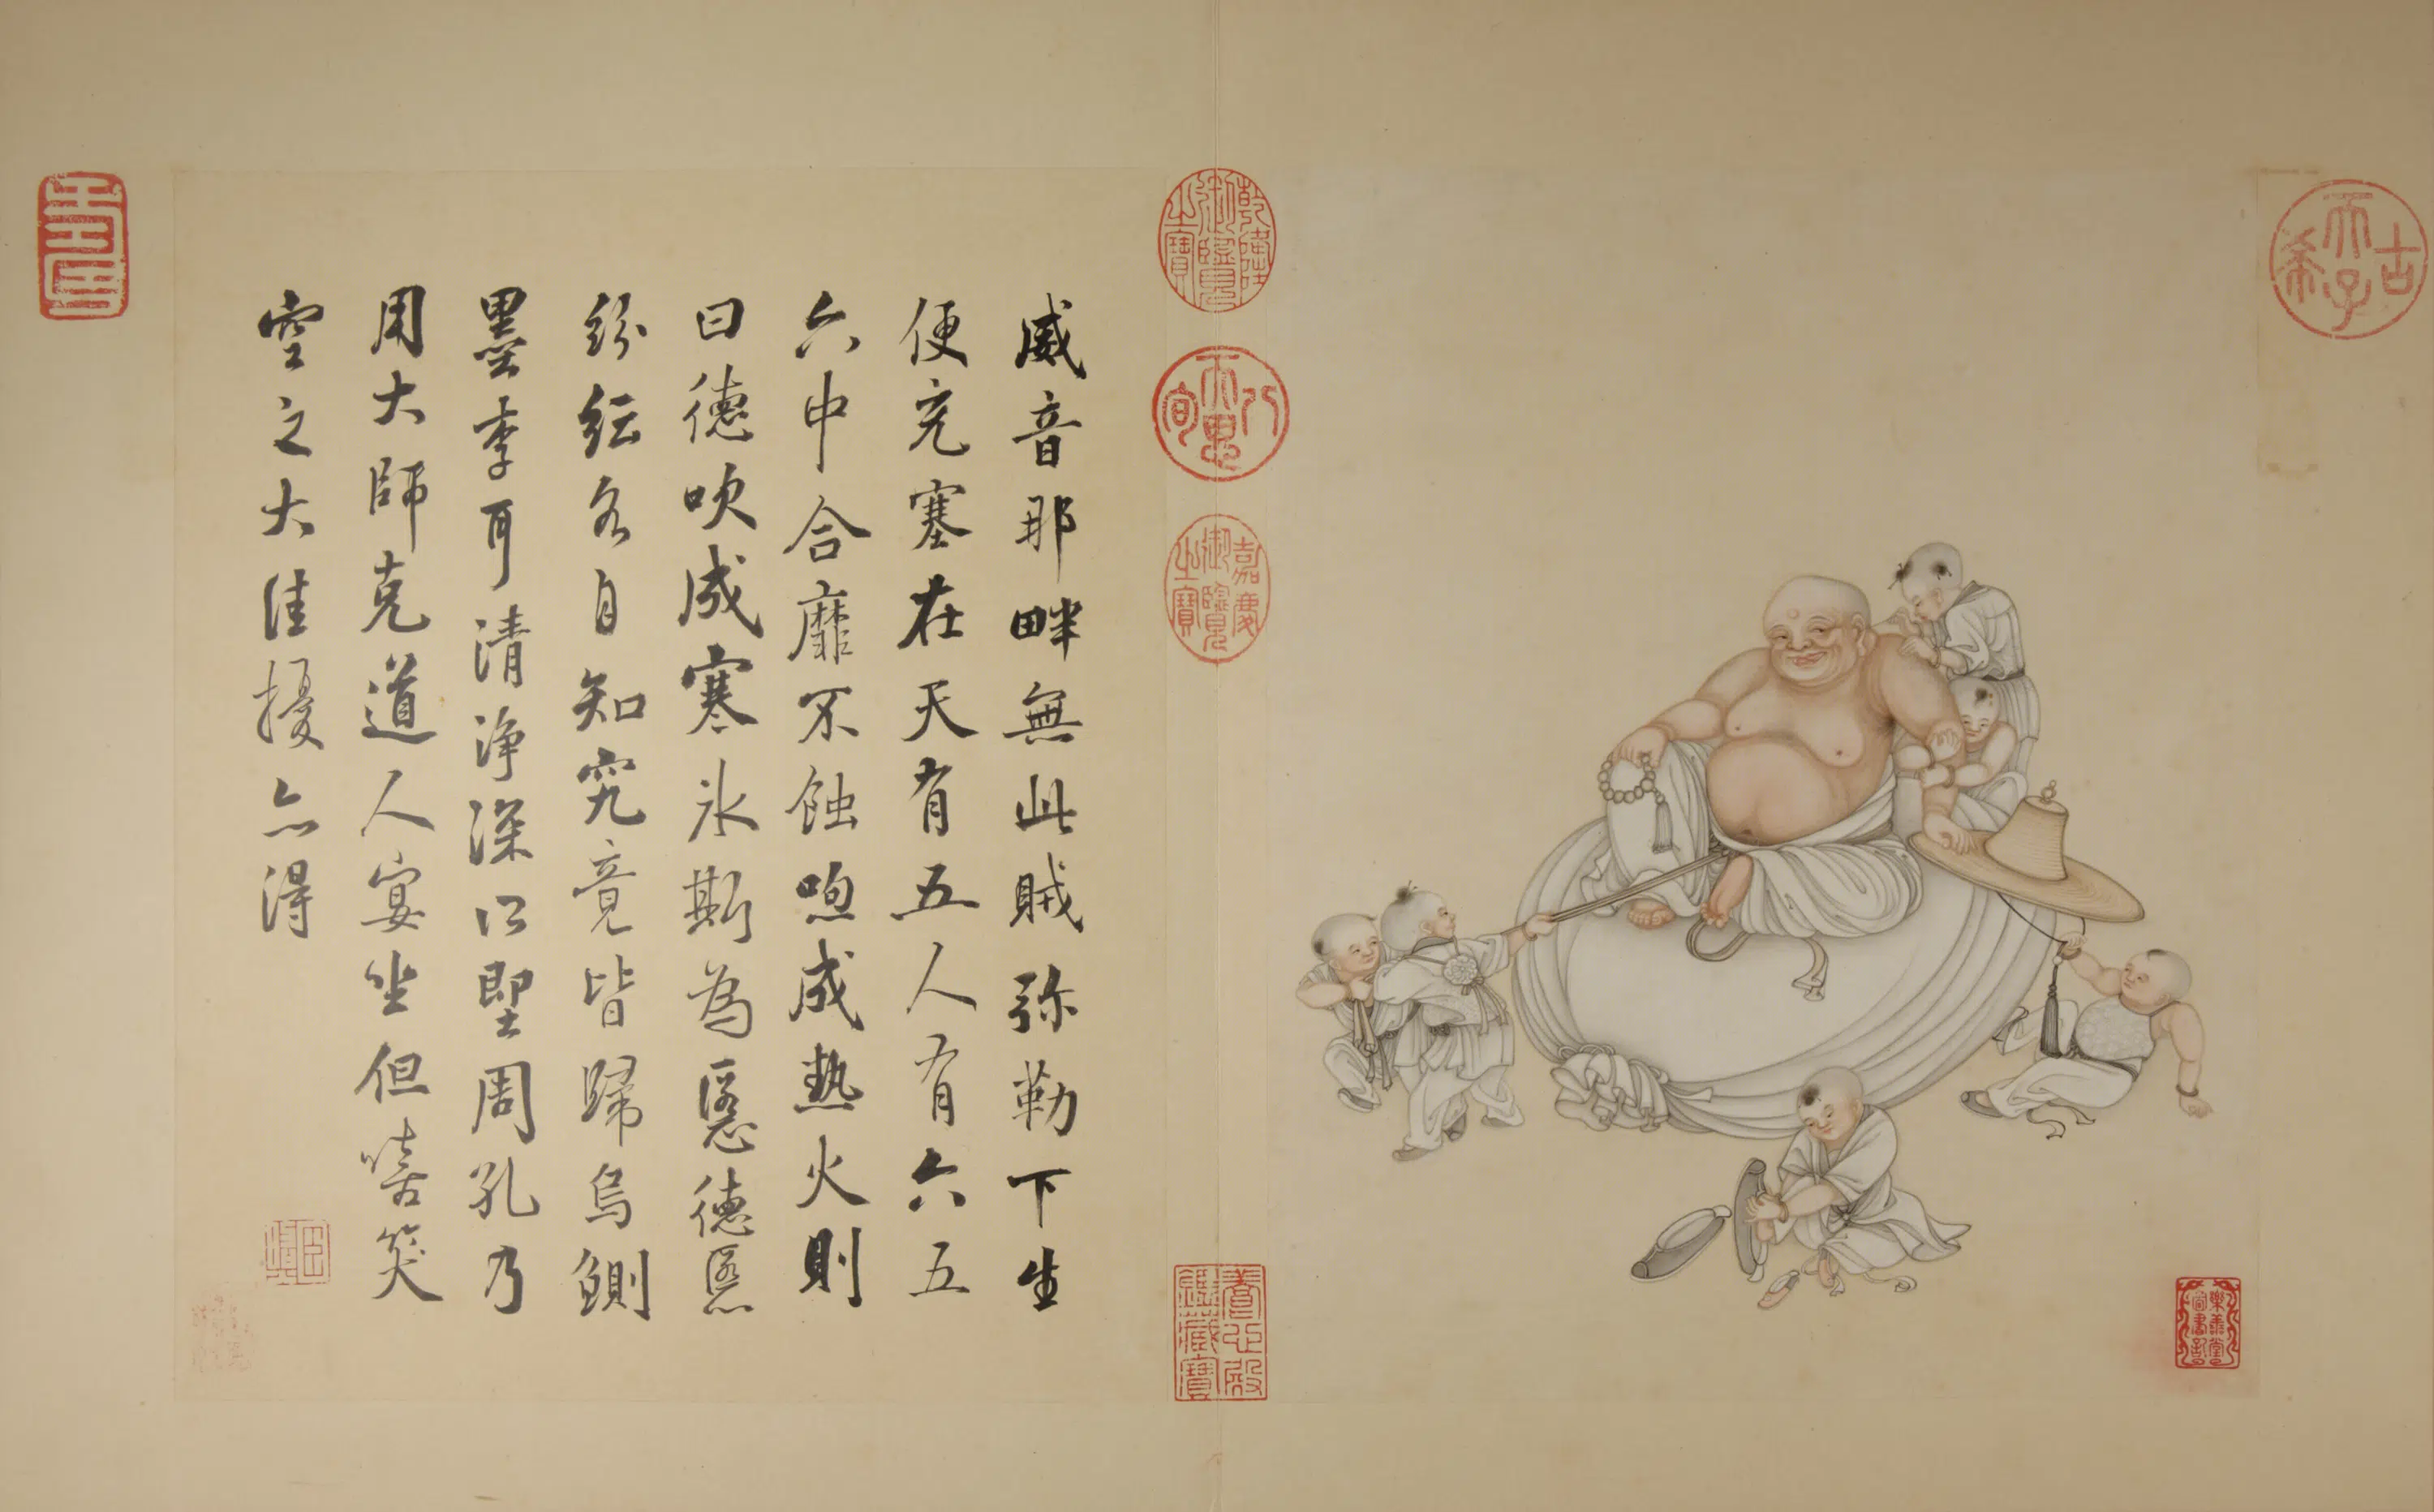 古希天子
樂善堂圖書記
乾隆御覽之寶
八旬天恩
嘉慶御覽之寶
養心殿鑑藏寶
威音那畔無此賊弥勒下生
便充塞在天有五人有六五
六中合靡不蝕喣成熱火則
曰德吹成寒冰斯為慝德慝
紛紜各自知究竟皆歸烏鰂
墨李耳清淨深以堲周孔乃
用大師克道人宴坐但嘻笑
空之大佳擾亦得
壽